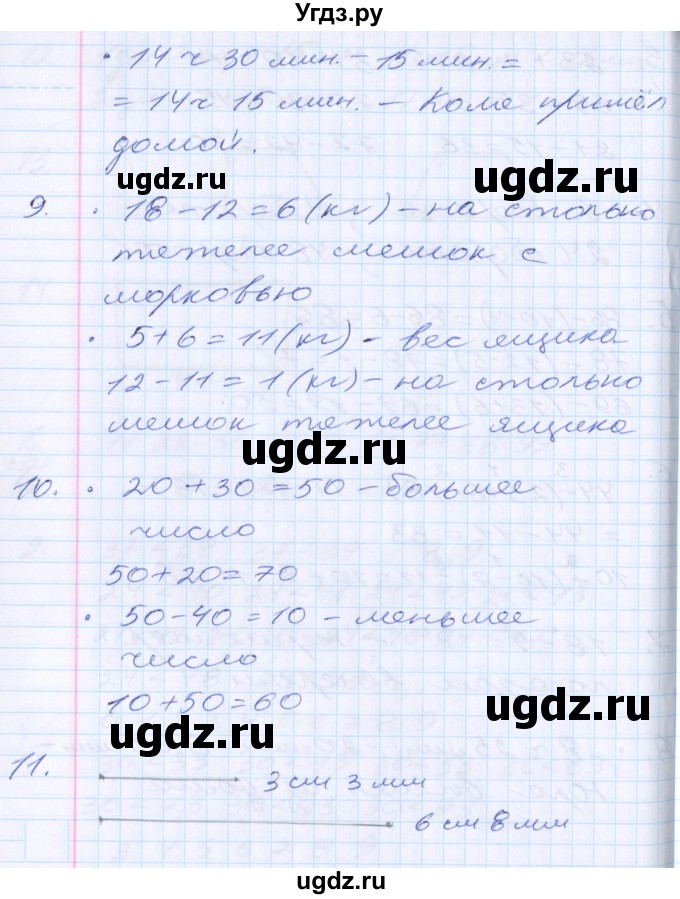 Угдз.ру
• 14 ч 30 мин. – 15 мин. =
= 14 ч 15 мин. – Коле пришёл
домой.
ugdz.ru ugdz.ru
9. • 18 – 12 = 6 (кг) – на столько
тяжелее мешок с
морковью
• 5 + 6 = 11 (кг) – вес ящика
12 – 11 = 1 (кг) – на столько
мешок тяжелее ящика
ugdz.ru
10. • 20 + 30 = 50 – большее
число
50 + 20 = 70
• 50 – 40 = 10 – меньшее
число
10 + 50 = 60
ugdz.ru
ugdz.ru
11. 3 см 3 мм
6 см 8 мм
ugdz.ru